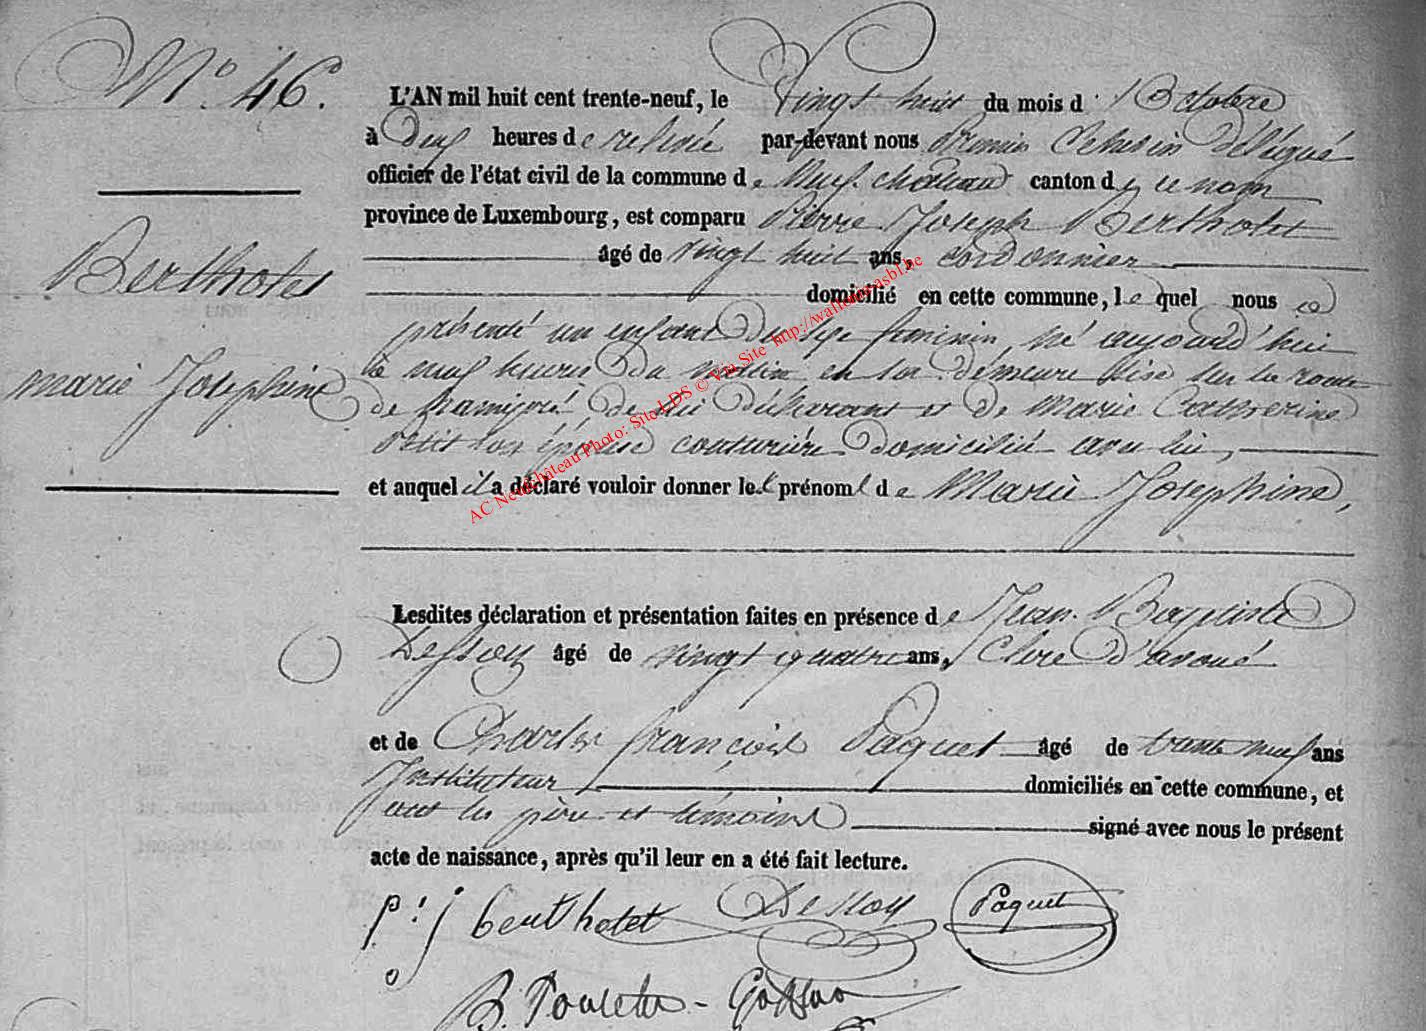 N° 46.
L'AN mil huit cent trente-neuf, le Vingt huit du mois d'Octobre
à Deux heures de relevée par-devant nous Premier Echevin délégué
officier de l'état civil de la commune de Neufchâteau canton de ce nom
province de Luxembourg, est comparu Pierre Joseph Berthotet
âgé de vingt huit ans, cordonnier
domicilié en cette commune, lequel nous a
présenté un enfant du sexe féminin, né aujourd'hui
à neuf heures du matin en sa demeure sise sur la route
de de lui déclarant et de Marie Catherine
Petit son épouse couturière domicilié avec lui,
et auquel il a déclaré vouloir donner le prénom de Marie Josephine,
Berthotet
marie Josephine
Lesdites déclaration et présentation faites en présence de Jean-Baptiste
Dessoy âgé de vingt quatre ans, Clerc d'avoué
et de Charles françois Paquet âgé de trente neuf ans
Instituteur domiciliés en cette commune, et
ont les père et témoins signé avec nous le présent
acte de naissance, après qu'il leur en a été fait lecture.
p: j berthotet Dessoy Paquet
AC Neufchâteau Photo: Site LDS © Via Site http://wallonia-asbl.be